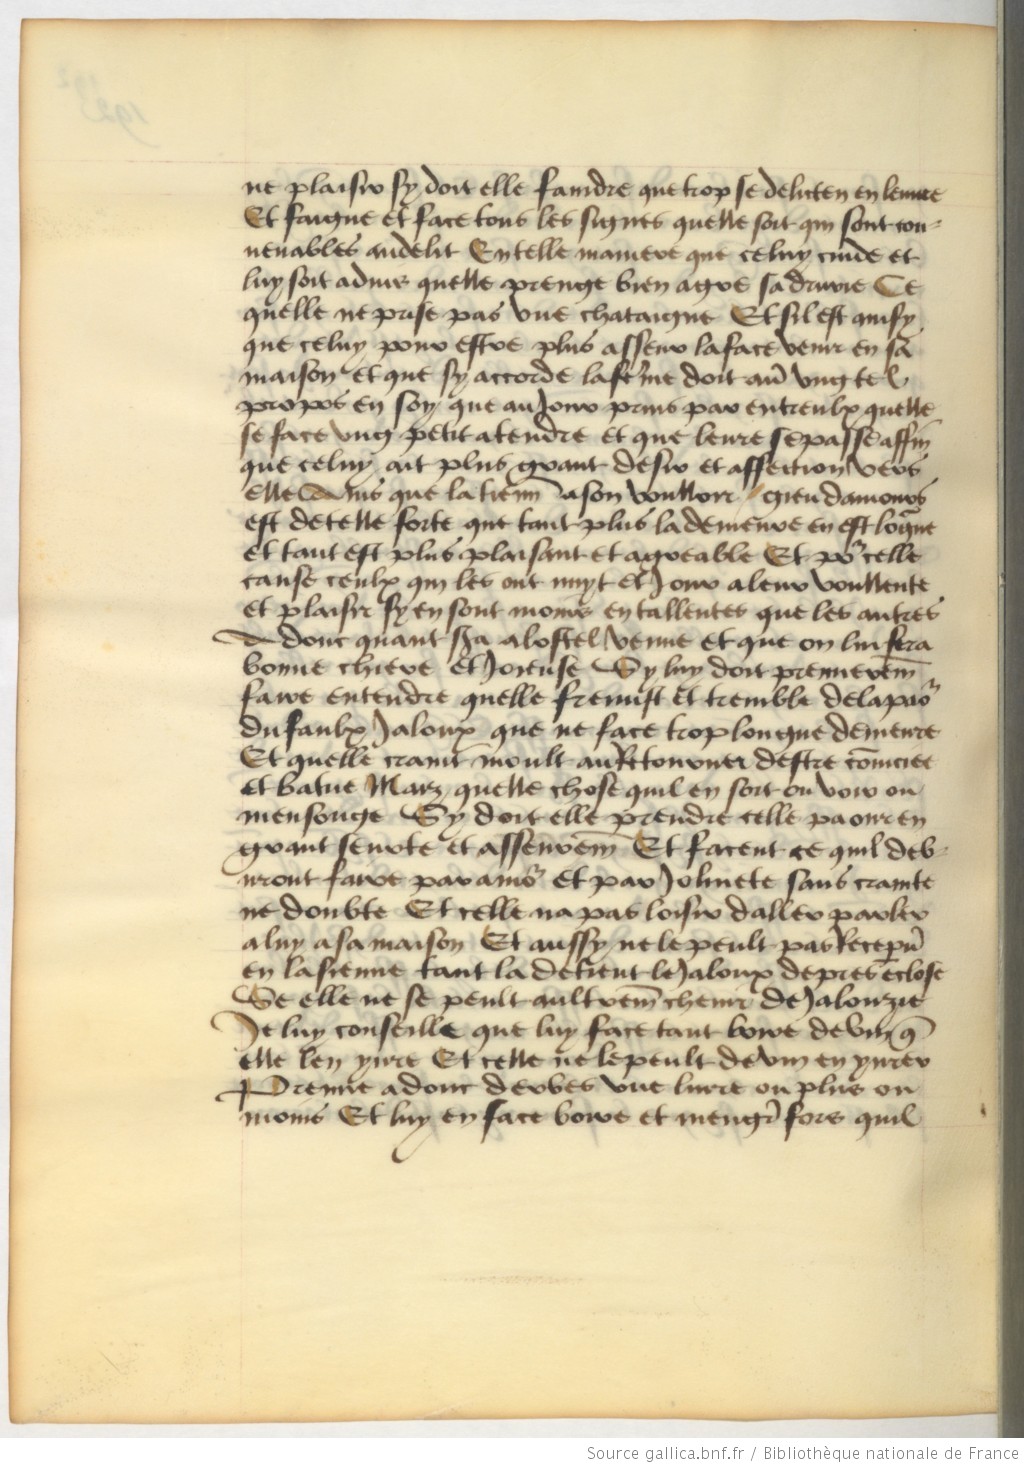 ne plaisir sy doit elle faindre que trop se deliten en leuure
Et faigne et face tous les signes quelle soit qui sont con-
uenables au delit En telle maniere que celuy cuide et
luy soit aduis quelle prenge bien a gre sa druerie Ce
quelle ne prise pas vne chataigne Et sil est ainsy
que celuy pour estre plus asseur la face venir en sa
maison et que sy accorde la feme doit auoir vng tel
propos en soy que au Jour prins par entreulx quelle
se face vng petit atendre et que leure se passe affin
que celuy ait plus grant desir et affection vers
elle Ains que la tienne a son voulloir gieu damours
est de telle forte que tant plus la demeure en est longue
et tant est plus plaisant et agreable Et pour celle
cause ceulx qui les ont nuyt et Jour a leur voullente
et plaisir sy en sont moins entallentes que les autres
Adonc quant Ja a lostel venue et que on lui fera
bonne chiere et Joieuse Sy luy doit premierement
faire entendre quelle fremist et tremble de la paour
du faulx Jaloux que ne face trop longue demeure
Et quelle craint moult au Retourner destre tomciee
et batue Maiz quelle chose quil en soit ou voir ou
mensonge Sy doit elle prendre celle paour en
grant seurte et asseurem̄ Et facent ce quil deb-
uront faire par amour et par Jolinete sans crainte
ne doubte Et celle na pas loisir daller parler
a luy a sa maison Et aussy ne le peult pas Recepuoir
en la sienne tant la detient le Jaloux de pres enclose
Se elle ne se peult aultrem̄ cheuir de Jalouzie
Je luy conseille que luy face tant boire de vin q̄
elle len yure Et celle ne le peult de vin enyurer
Prenne adonc derbes vne liure ou plus ou
moins Et luy en face boire et menger fors quil
Source gallica.bnf.fr / Bibliothèque nationale de France